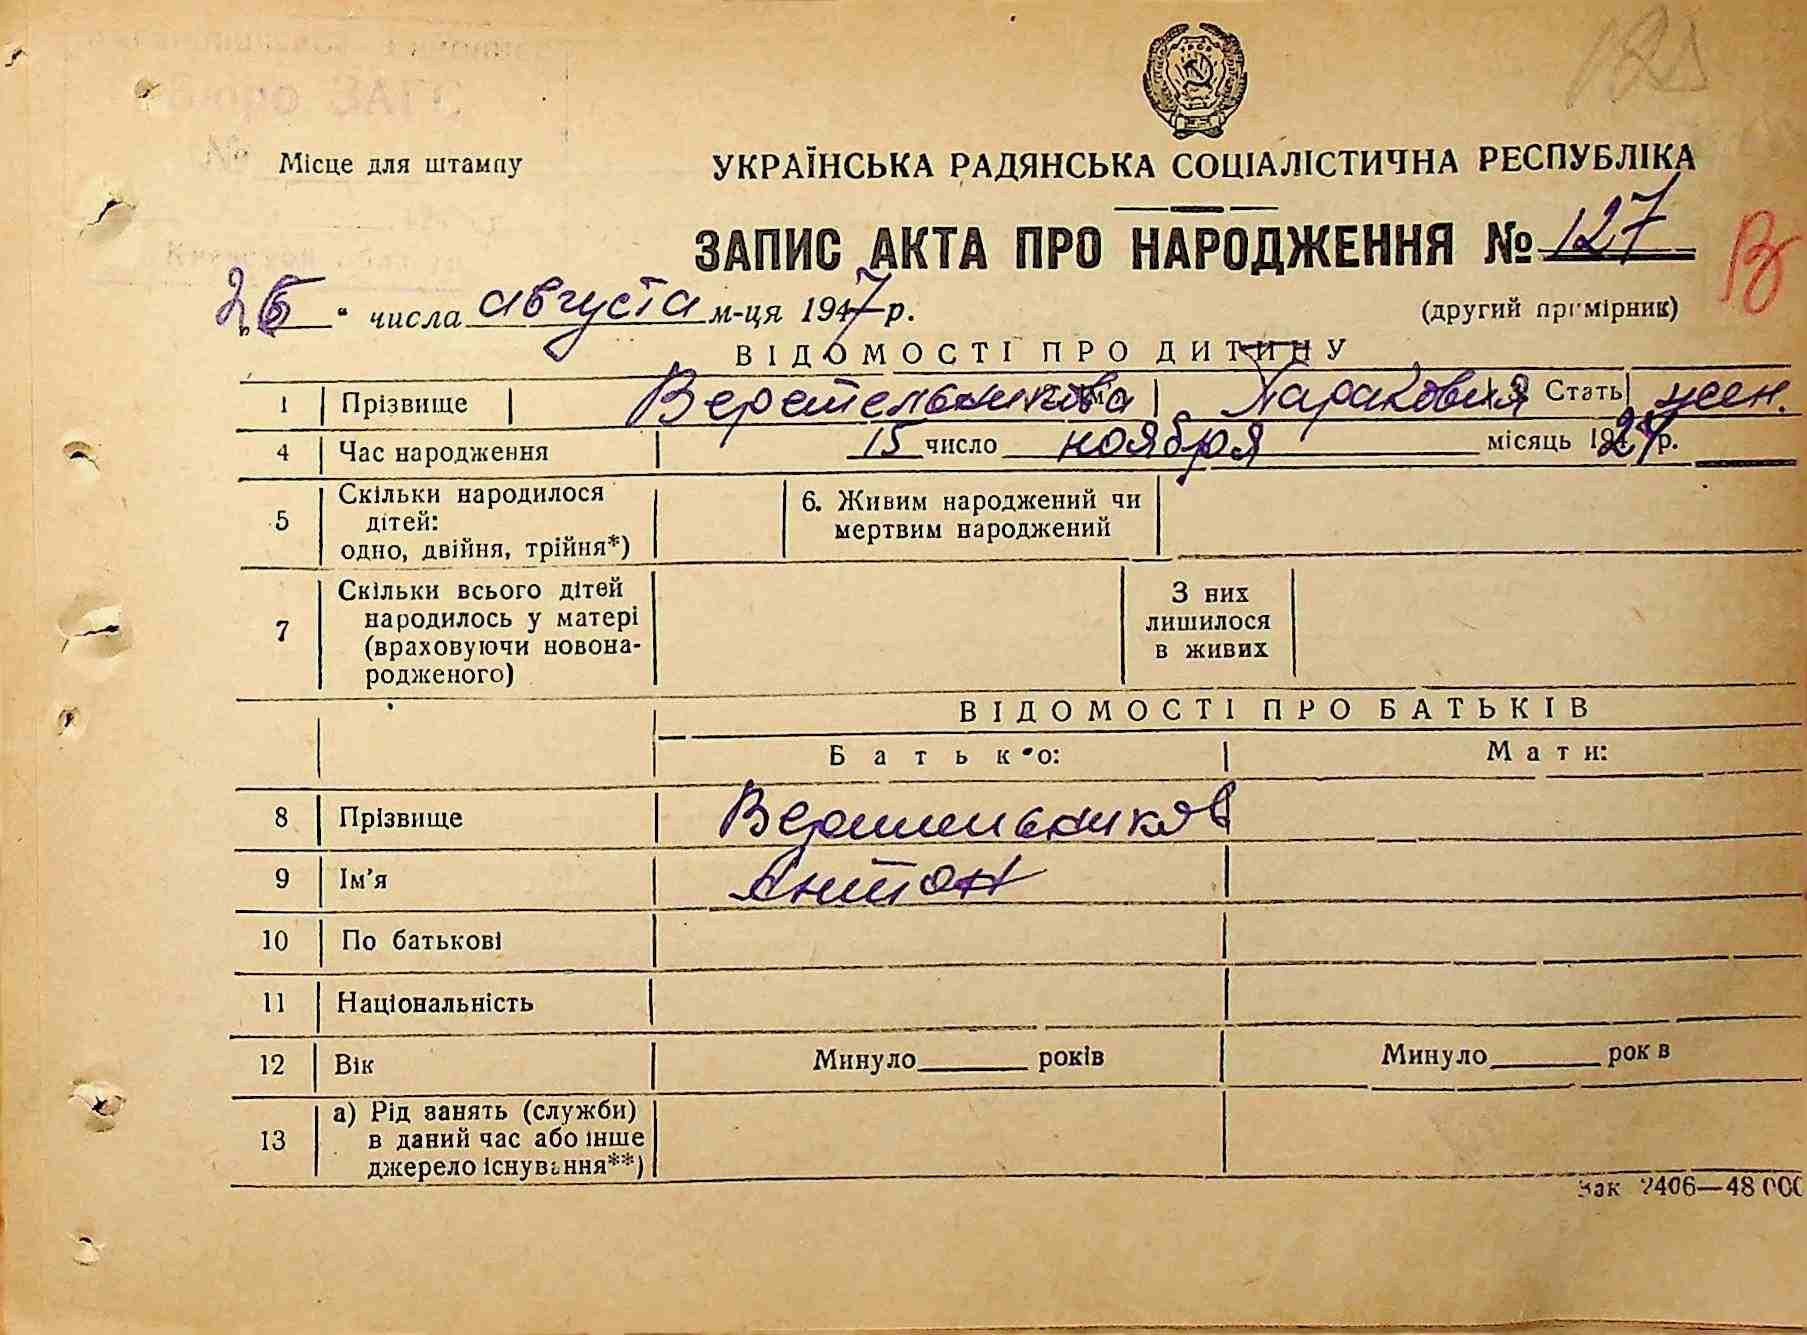 Місце для штампу
УКРАЇНСЬКА РАДЯНСЬКА СОЦІАЛІСТИЧНА РЕСПУБЛІКА
ЗАПИС АКТА ПРО НАРОДЖЕННЯ № 127
В
„26“ числа августа м-ця 1947 р.
(другий примірник)
ВІДОМОСТІ ПРО ДИТИНУ
1 Прізвище Веретельникова Параковия Стать жен.
4 Час народження 15 число ноября місяць р.
5 Скільки народилося дітей: одно, двійня, трійня*)
6. Живим народжений чи мертвим народжений
7 Скільки всього дітей народилось у матері (враховуючи новонародженого)
З них лишилося в живих
ВІДОМОСТІ ПРО БАТЬКІВ
Батько: Мати:
8 Прізвище Веретельников
9 Ім'я Антон
10 По батькові
11 Національність
12 Вік Минуло років Минуло рок в
13 а) Рід занять (служби) в даний час або інше джерело існування**)
Зак 2406—48 000